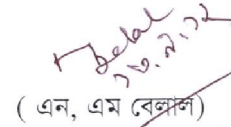 Belal
১৩.৯.১২
( এন, এম বেলাল)